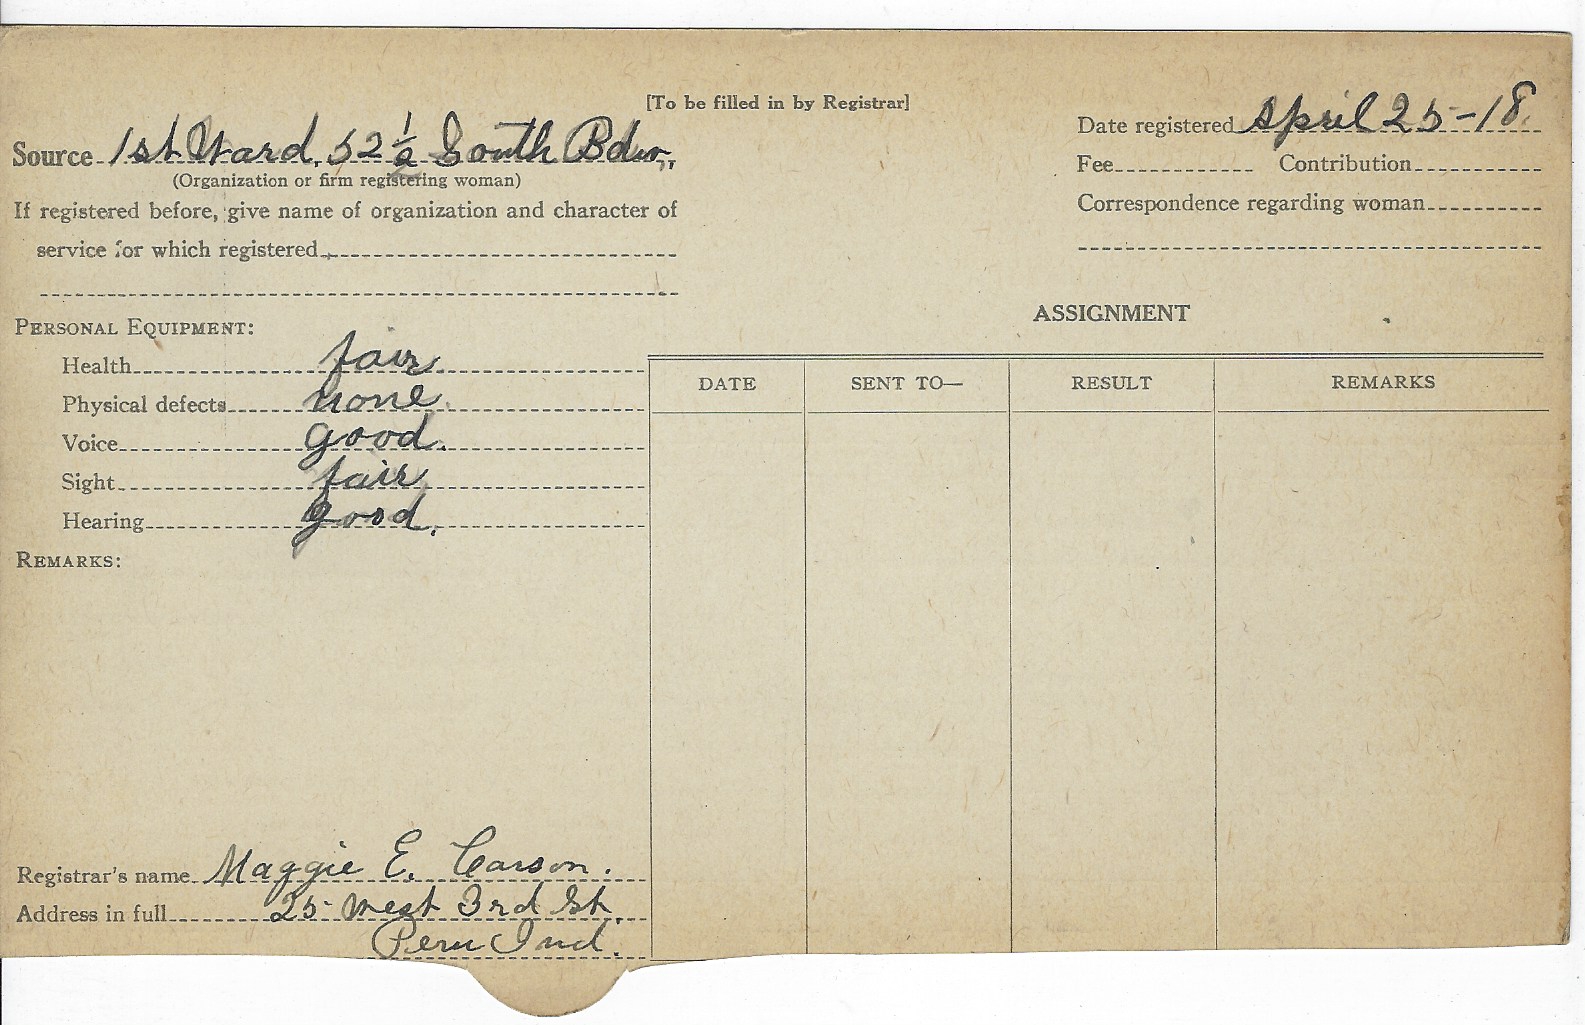 [To be filled in by Registrar]
Source 1st Ward, 52 1/2 South Bdw,,
(Organization or firm registering woman)
If registered before, give name of organization and character of
service for which registered
Date registered April 25-18.
Fee Contribution
Correspondence regarding woman
PERSONAL EQUIPMENT:
Health fair
Physical defects none.
Voice good.
Sight fair
Hearing good.
REMARKS:
ASSIGNMENT
DATE SENT TO— RESULT REMARKS
Registrar's name Maggie E. Carson.
Address in full 25 West 3rd St.
Peru Ind.